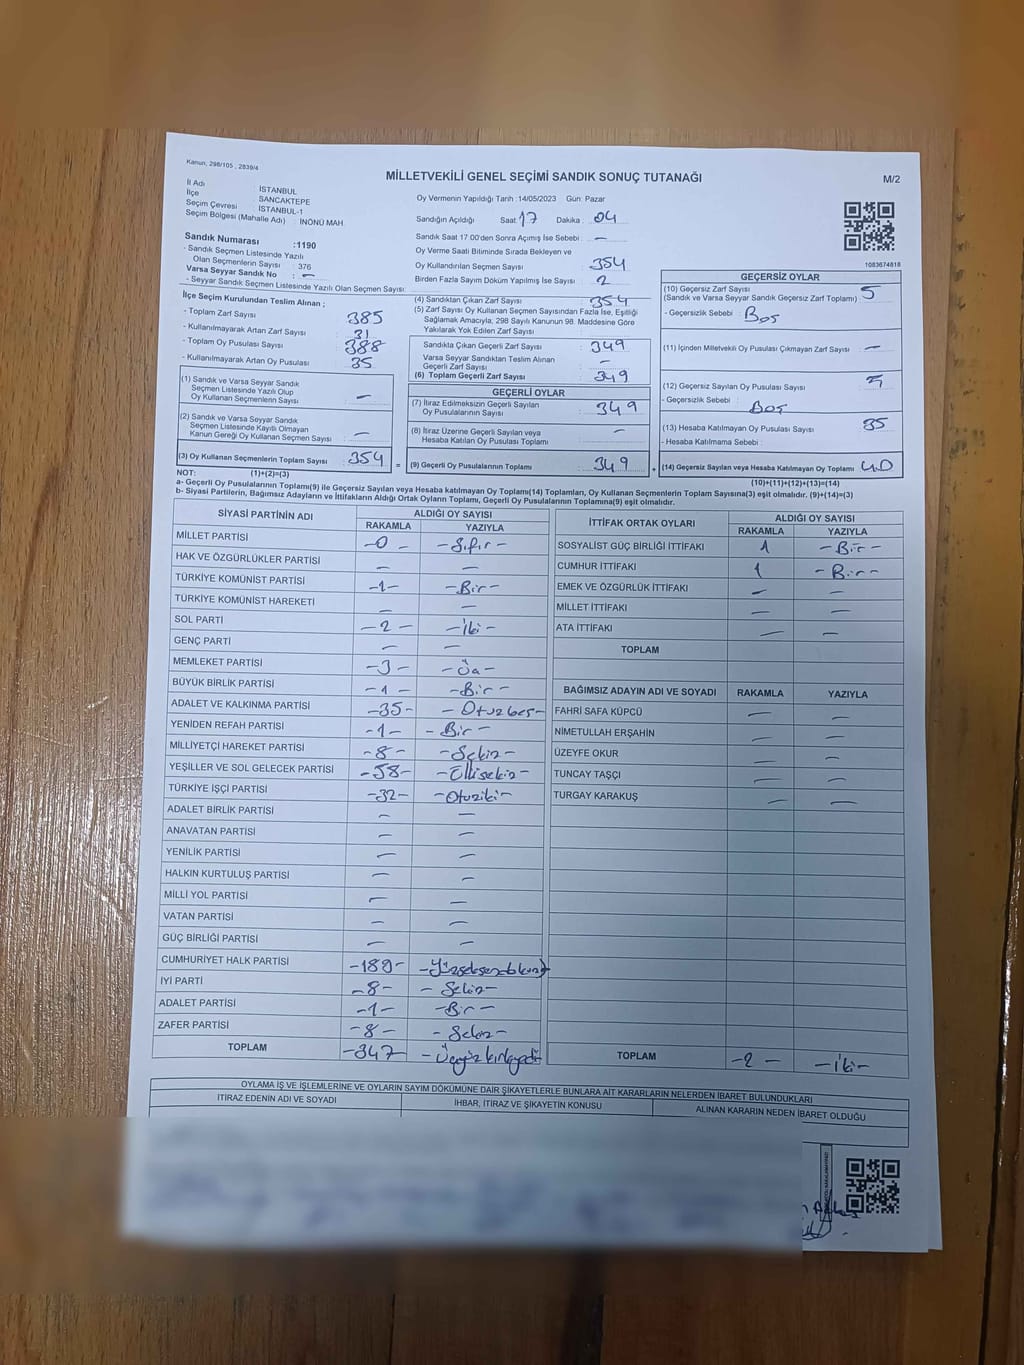 Kanun; 298/105 , 2839/4
MİLLETVEKİLİ GENEL SEÇİMİ SANDIK SONUÇ TUTANAĞI
M/2
İl Adı : İSTANBUL
İlçe : SANCAKTEPE
Seçim Çevresi : İSTANBUL-1
Seçim Bölgesi (Mahalle Adı) : İNÖNÜ MAH.
Sandık Numarası :1190
- Sandık Seçmen Listesinde Yazılı
Olan Seçmenlerin Sayısı : 376
Varsa Seyyar Sandık No : —
- Seyyar Sandık Seçmen Listesinde Yazılı Olan Seçmen Sayısı:
Oy Vermenin Yapıldığı Tarih :14/05/2023 Gün: Pazar
Sandığın Açıldığı Saat : 17 Dakika : 04
Sandık Saat 17.00'den Sonra Açımış İse Sebebi : —
Oy Verme Saati Bitiminde Sırada Bekleyen ve
Oy Kullandırılan Seçmen Sayısı : 354
Birden Fazla Sayım Döküm Yapılmış İse Sayısı : 2
1083674818
İlçe Seçim Kurulundan Teslim Alınan ;
- Toplam Zarf Sayısı : 385
- Kullanılmayarak Artan Zarf Sayısı : 31
- Toplam Oy Pusulası Sayısı : 388
- Kullanılmayarak Artan Oy Pusulası : 35
(1) Sandık ve Varsa Seyyar Sandık
Seçmen Listesinde Yazılı Olup
Oy Kullanan Seçmenlerin Sayısı : —
(2) Sandık ve Varsa Seyyar Sandık
Seçmen Listesinde Kayıtlı Olmayan
Kanun Gereği Oy Kullanan Seçmen Sayısı : —
(3) Oy Kullanan Seçmenlerin Toplam Sayısı : 354
(4) Sandıktan Çıkan Zarf Sayısı : 354
(5) Zarf Sayısı Oy Kullanan Seçmen Sayısından Fazla İse, Eşitliği
Sağlamak Amacıyla, 298 Sayılı Kanunun 98. Maddesine Göre
Yakılarak Yok Edilen Zarf Sayısı
Sandıkta Çıkan Geçerli Zarf Sayısı : 349
Varsa Seyyar Sandıktan Teslim Alınan
Geçerli Zarf Sayısı : —
(6) Toplam Geçerli Zarf Sayısı : 349
GEÇERLİ OYLAR
(7) İtiraz Edilmeksizin Geçerli Sayılan
Oy Pusulalarının Sayısı : 349
(8) İtiraz Üzerine Geçerli Sayılan veya
Hesaba Katılan Oy Pusulası Toplamı : —
= (9) Geçerli Oy Pusulalarının Toplamı : 349
GEÇERSİZ OYLAR
(10) Geçersiz Zarf Sayısı : 5
(Sandık ve Varsa Seyyar Sandık Geçersiz Zarf Toplamı)
- Geçersizlik Sebebi : Boş
(11) İçinden Milletvekili Oy Pusulası Çıkmayan Zarf Sayısı : —
(12) Geçersiz Sayılan Oy Pusulası Sayısı
- Geçersizlik Sebebi : Boş
(13) Hesaba Katılmayan Oy Pusulası Sayısı : 35
- Hesaba Katılmama Sebebi :
+ (14) Geçersiz Sayılan veya Hesaba Katılmayan Oy Toplamı : 40
NOT: (1)+(2)=(3)
(10)+(11)+(12)+(13)=(14)
a- Geçerli Oy Pusulalarının Toplamı(9) ile Geçersiz Sayılan veya Hesaba katılmayan Oy Toplamı(14) Toplamları, Oy Kullanan Seçmenlerin Toplam Sayısına(3) eşit olmalıdır. (9)+(14)=(3)
b- Siyasi Partilerin, Bağımsız Adayların ve İttifakların Aldığı Ortak Oyların Toplamı, Geçerli Oy Pusulalarının Toplamına(9) eşit olmalıdır.
SİYASİ PARTİNİN ADI ALDIĞI OY SAYISI
RAKAMLA YAZIYLA
MİLLET PARTİSİ -0- -Sıfır-
HAK VE ÖZGÜRLÜKLER PARTİSİ — —
TÜRKİYE KOMÜNİST PARTİSİ -1- -Bir-
TÜRKİYE KOMÜNİST HAREKETİ — —
SOL PARTİ -2- -İki-
GENÇ PARTİ — —
MEMLEKET PARTİSİ -3-
BÜYÜK BİRLİK PARTİSİ -1- -Bir-
ADALET VE KALKINMA PARTİSİ -35- -Otuzbeş-
YENİDEN REFAH PARTİSİ -1- -Bir-
MİLLİYETÇİ HAREKET PARTİSİ -8- -Sekiz-
YEŞİLLER VE SOL GELECEK PARTİSİ -58- -Ellisekiz-
TÜRKİYE İŞÇİ PARTİSİ -32- -Otuziki-
ADALET BİRLİK PARTİSİ — —
ANAVATAN PARTİSİ — —
YENİLİK PARTİSİ — —
HALKIN KURTULUŞ PARTİSİ — —
MİLLİ YOL PARTİSİ — —
VATAN PARTİSİ — —
GÜÇ BİRLİĞİ PARTİSİ — —
CUMHURİYET HALK PARTİSİ -189-
İYİ PARTİ -8- -Sekiz-
ADALET PARTİSİ -1- -Bir-
ZAFER PARTİSİ -8- -Sekiz-
TOPLAM -347- -Üçyüzkırkyedi-
İTTİFAK ORTAK OYLARI ALDIĞI OY SAYISI
RAKAMLA YAZIYLA
SOSYALİST GÜÇ BİRLİĞİ İTTİFAKI 1 -Bir-
CUMHUR İTTİFAKI 1 -Bir-
EMEK VE ÖZGÜRLÜK İTTİFAKI — —
MİLLET İTTİFAKI — —
ATA İTTİFAKI — —
TOPLAM
BAĞIMSIZ ADAYIN ADI VE SOYADI RAKAMLA YAZIYLA
FAHRİ SAFA KÜPCÜ — —
NİMETULLAH ERŞAHİN — —
ÜZEYFE OKUR — —
TUNCAY TAŞÇI — —
TURGAY KARAKUŞ — —
TOPLAM -2- -İki-
OYLAMA İŞ VE İŞLEMLERİNE VE OYLARIN SAYIM DÖKÜMÜNE DAİR ŞİKAYETLERLE BUNLARA AİT KARARLARIN NELERDEN İBARET BULUNDUKLARI
İTİRAZ EDENİN ADI VE SOYADI İHBAR, İTİRAZ VE ŞİKAYETİN KONUSU ALINAN KARARIN NEDEN İBARET OLDUĞU